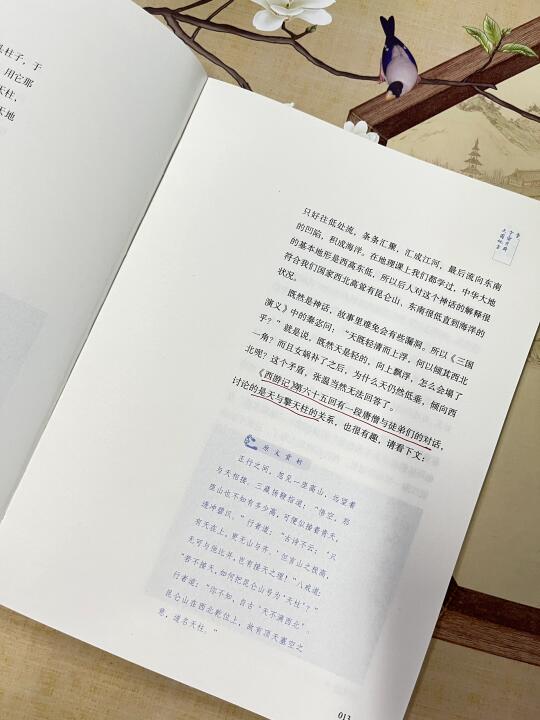 柱子，于
用它那
天柱，
天地
只好往低处流，条条汇聚，汇成江河，最后流向东南
的凹陷，积成海洋。在地理课上我们都学过，中华大地
的基本地形是西高东低，所以后人对这个神话的解释很
符合我们国家西北高耸有昆仑山、东南很低直到海洋的
状况。
既然是神话，故事里难免会有些漏洞。所以《三国
演义》中的秦宓问：“天既轻清而上浮，何以倾其西北
乎？”就是说，既然天是轻的，向上飘浮，怎么会塌了
一角？而且女娲补了之后，为什么天仍然低垂，倾向西
北呢？这个矛盾，张温当然无法回答了。
《西游记》第六十五回有一段唐僧与徒弟们的对话，
讨论的是天与擎天柱的关系，也很有趣，请看下文：
原文赏析
正行之间，忽见一座高山，远望着
与天相接。三藏扬鞭指道：“悟空，那
座山也不知有多少高，可便似接着青天，
透冲碧汉。”行者道：“古诗不云：‘只
有天在上，更无山与齐。’但言山之极高，
无可与他比并，岂有接天之理！”八戒道：
“若不接天，如何把昆仑山号为‘天柱’？”
行者道：“你不知，自古‘天不满西北’。
昆仑山在西北乾位上，故有顶天塞空之
意，遂名天柱。”
013